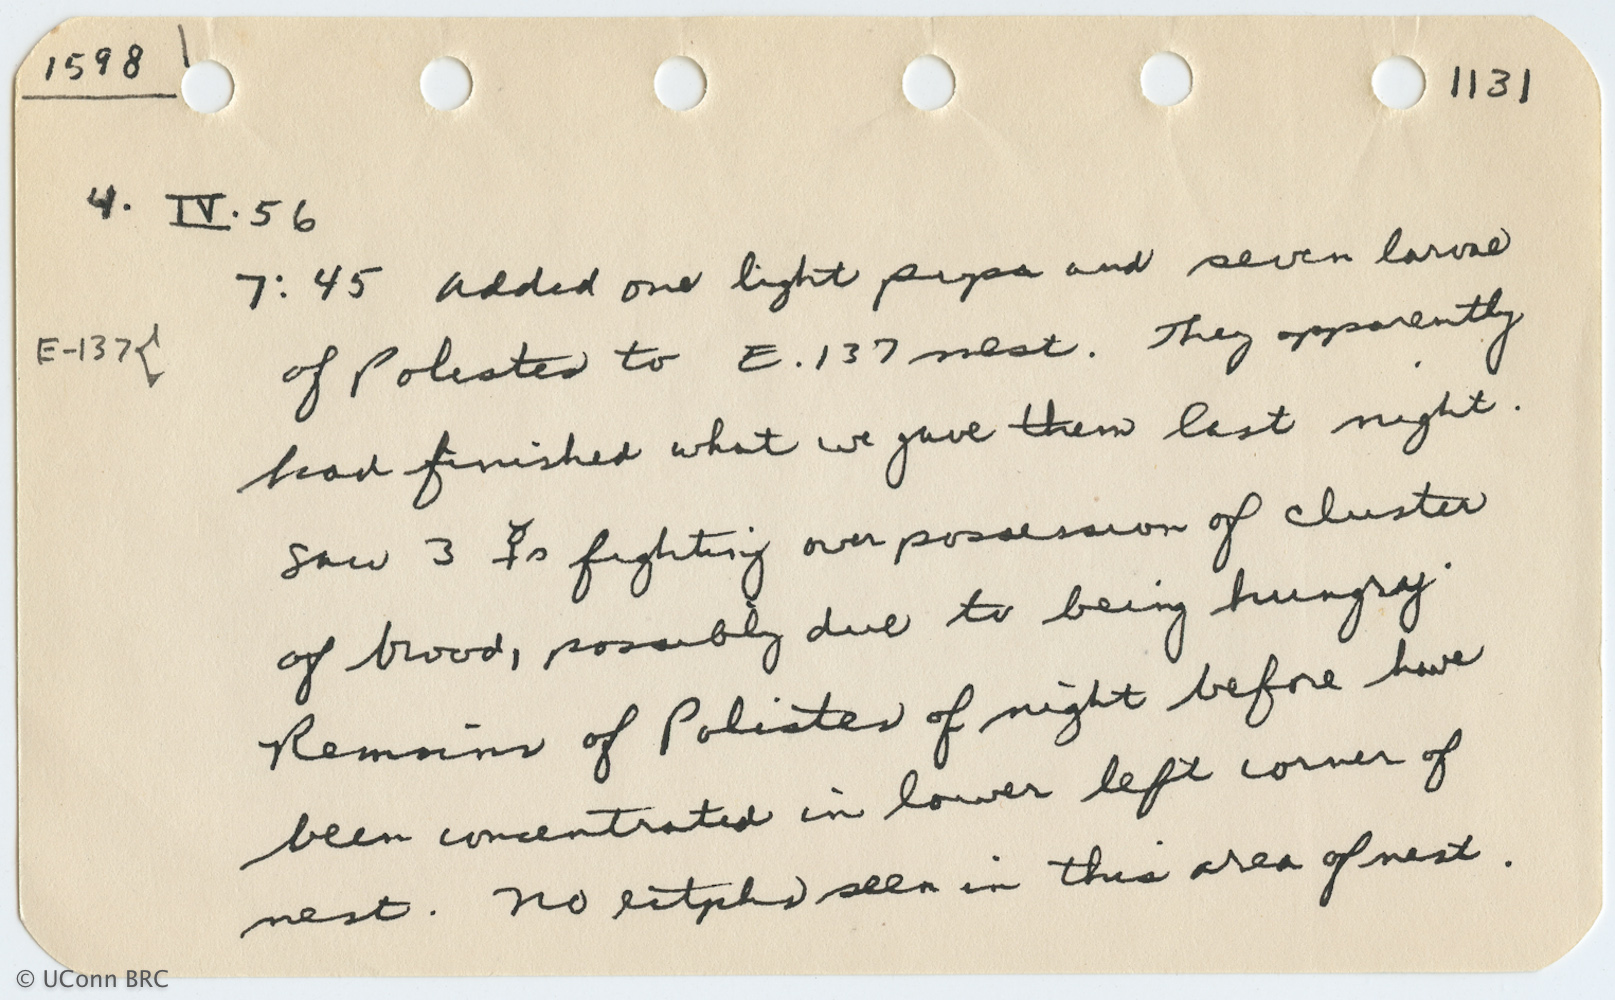 1598
1131
4. IV. 56
7:45 Added one light pupa and seven larvae
E-137{
of Polistes to E.137 nest. They apparently
had finished what we gave them last night.
Saw 3 ☿s fighting over possession of cluster
of brood, possibly due to being hungry.
Remains of Polistes of night before have
been concentrated in lower left corner of
nest. No seen in this area of nest.
© UConn BRC